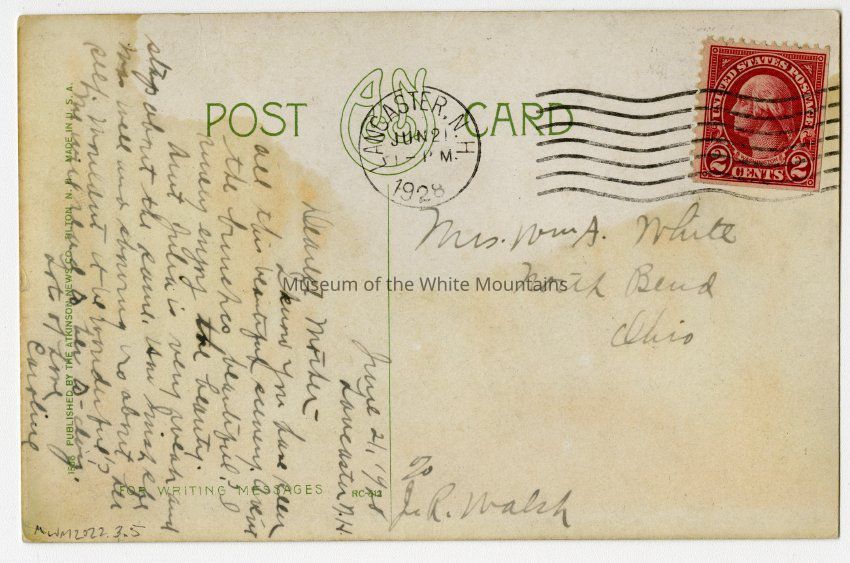 POST CARD
LANCASTER, N.H.
JUN 21
1 - PM
1928
UNITED STATES POSTAGE
2 CENTS 2
Mrs. Wm A. White
North Bend
Ohio
c/o
J. R. Walsh
June 21, 1928
Lancaster N.H.
Dearest Mother -
I know you have seen
all this beautiful scenery
the beautiful. I
enjoy the beauty.
Aunt Julia is very weak and
stays about the same. How I wish she
was well and showing us about her
self. Wouldn't it be wonderful?
read to her to-day.
Lots of love
Caroline
PUBLISHED BY THE ATKINSON NEWS CO. TILTON, N. H. MADE IN U.S.A.
FOR WRITING MESSAGES
RC-612
MWM2022.3.5
Museum of the White Mountains